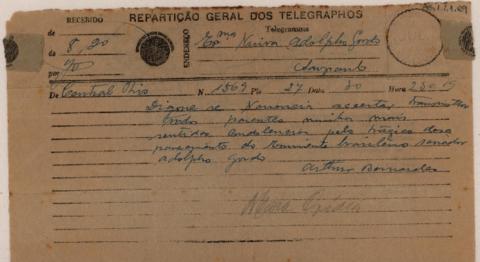 RECEBIDO
REPARTIÇÃO GERAL DOS TELEGRAPHOS
Telegramma
de 8,20
da
por
ENDEREÇO
Exma Viuva Adolpho Gordo
De Central Rio N. 1569 Pls 27 Data 30 Hora
Digne se V. acceitar transmittir
todos parentes minhas mais
sentidas condolencias pelo tragico desa
parecimento do eminente brasileiro senador
adolpho Gordo
Arthur Bernardes